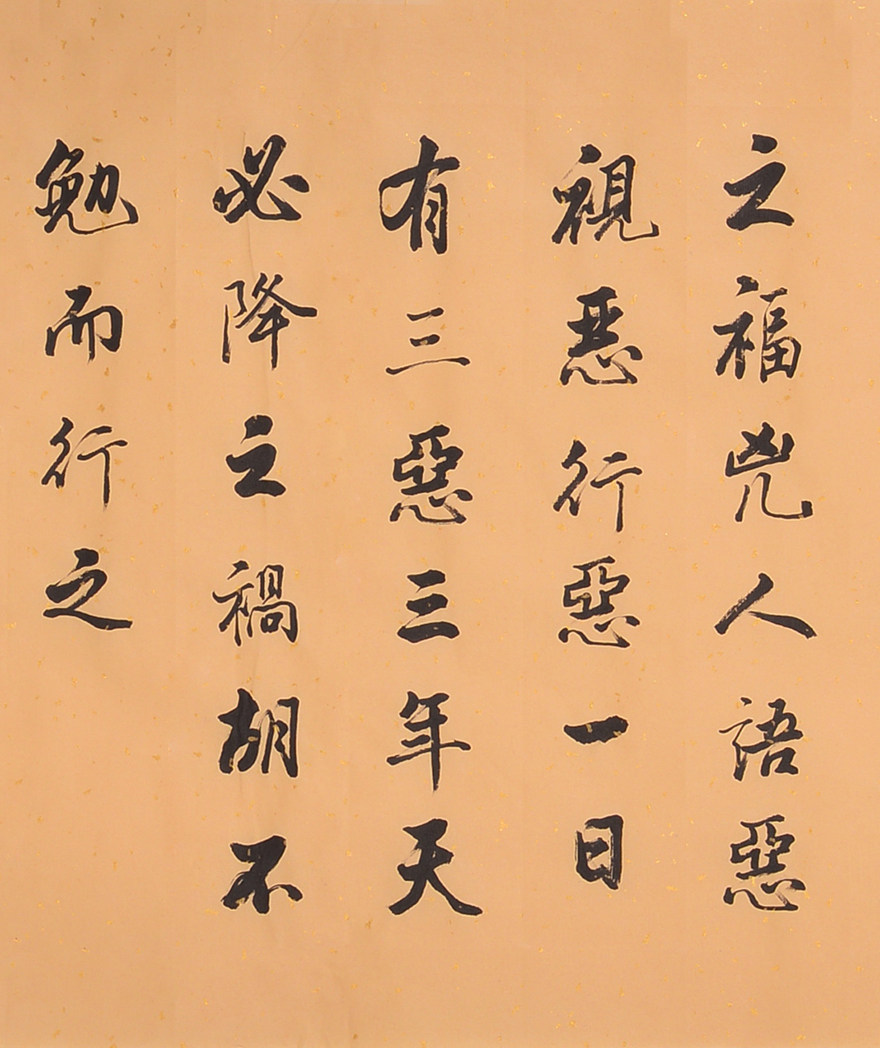 之福兇人語惡
視惡行惡一日
有三惡三年天
必降之禍胡不
勉而行之